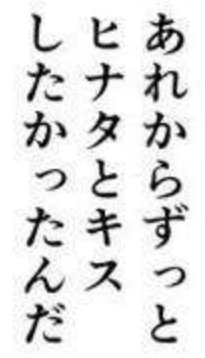 あれからずっと
ヒナタとキス
したかったんだ